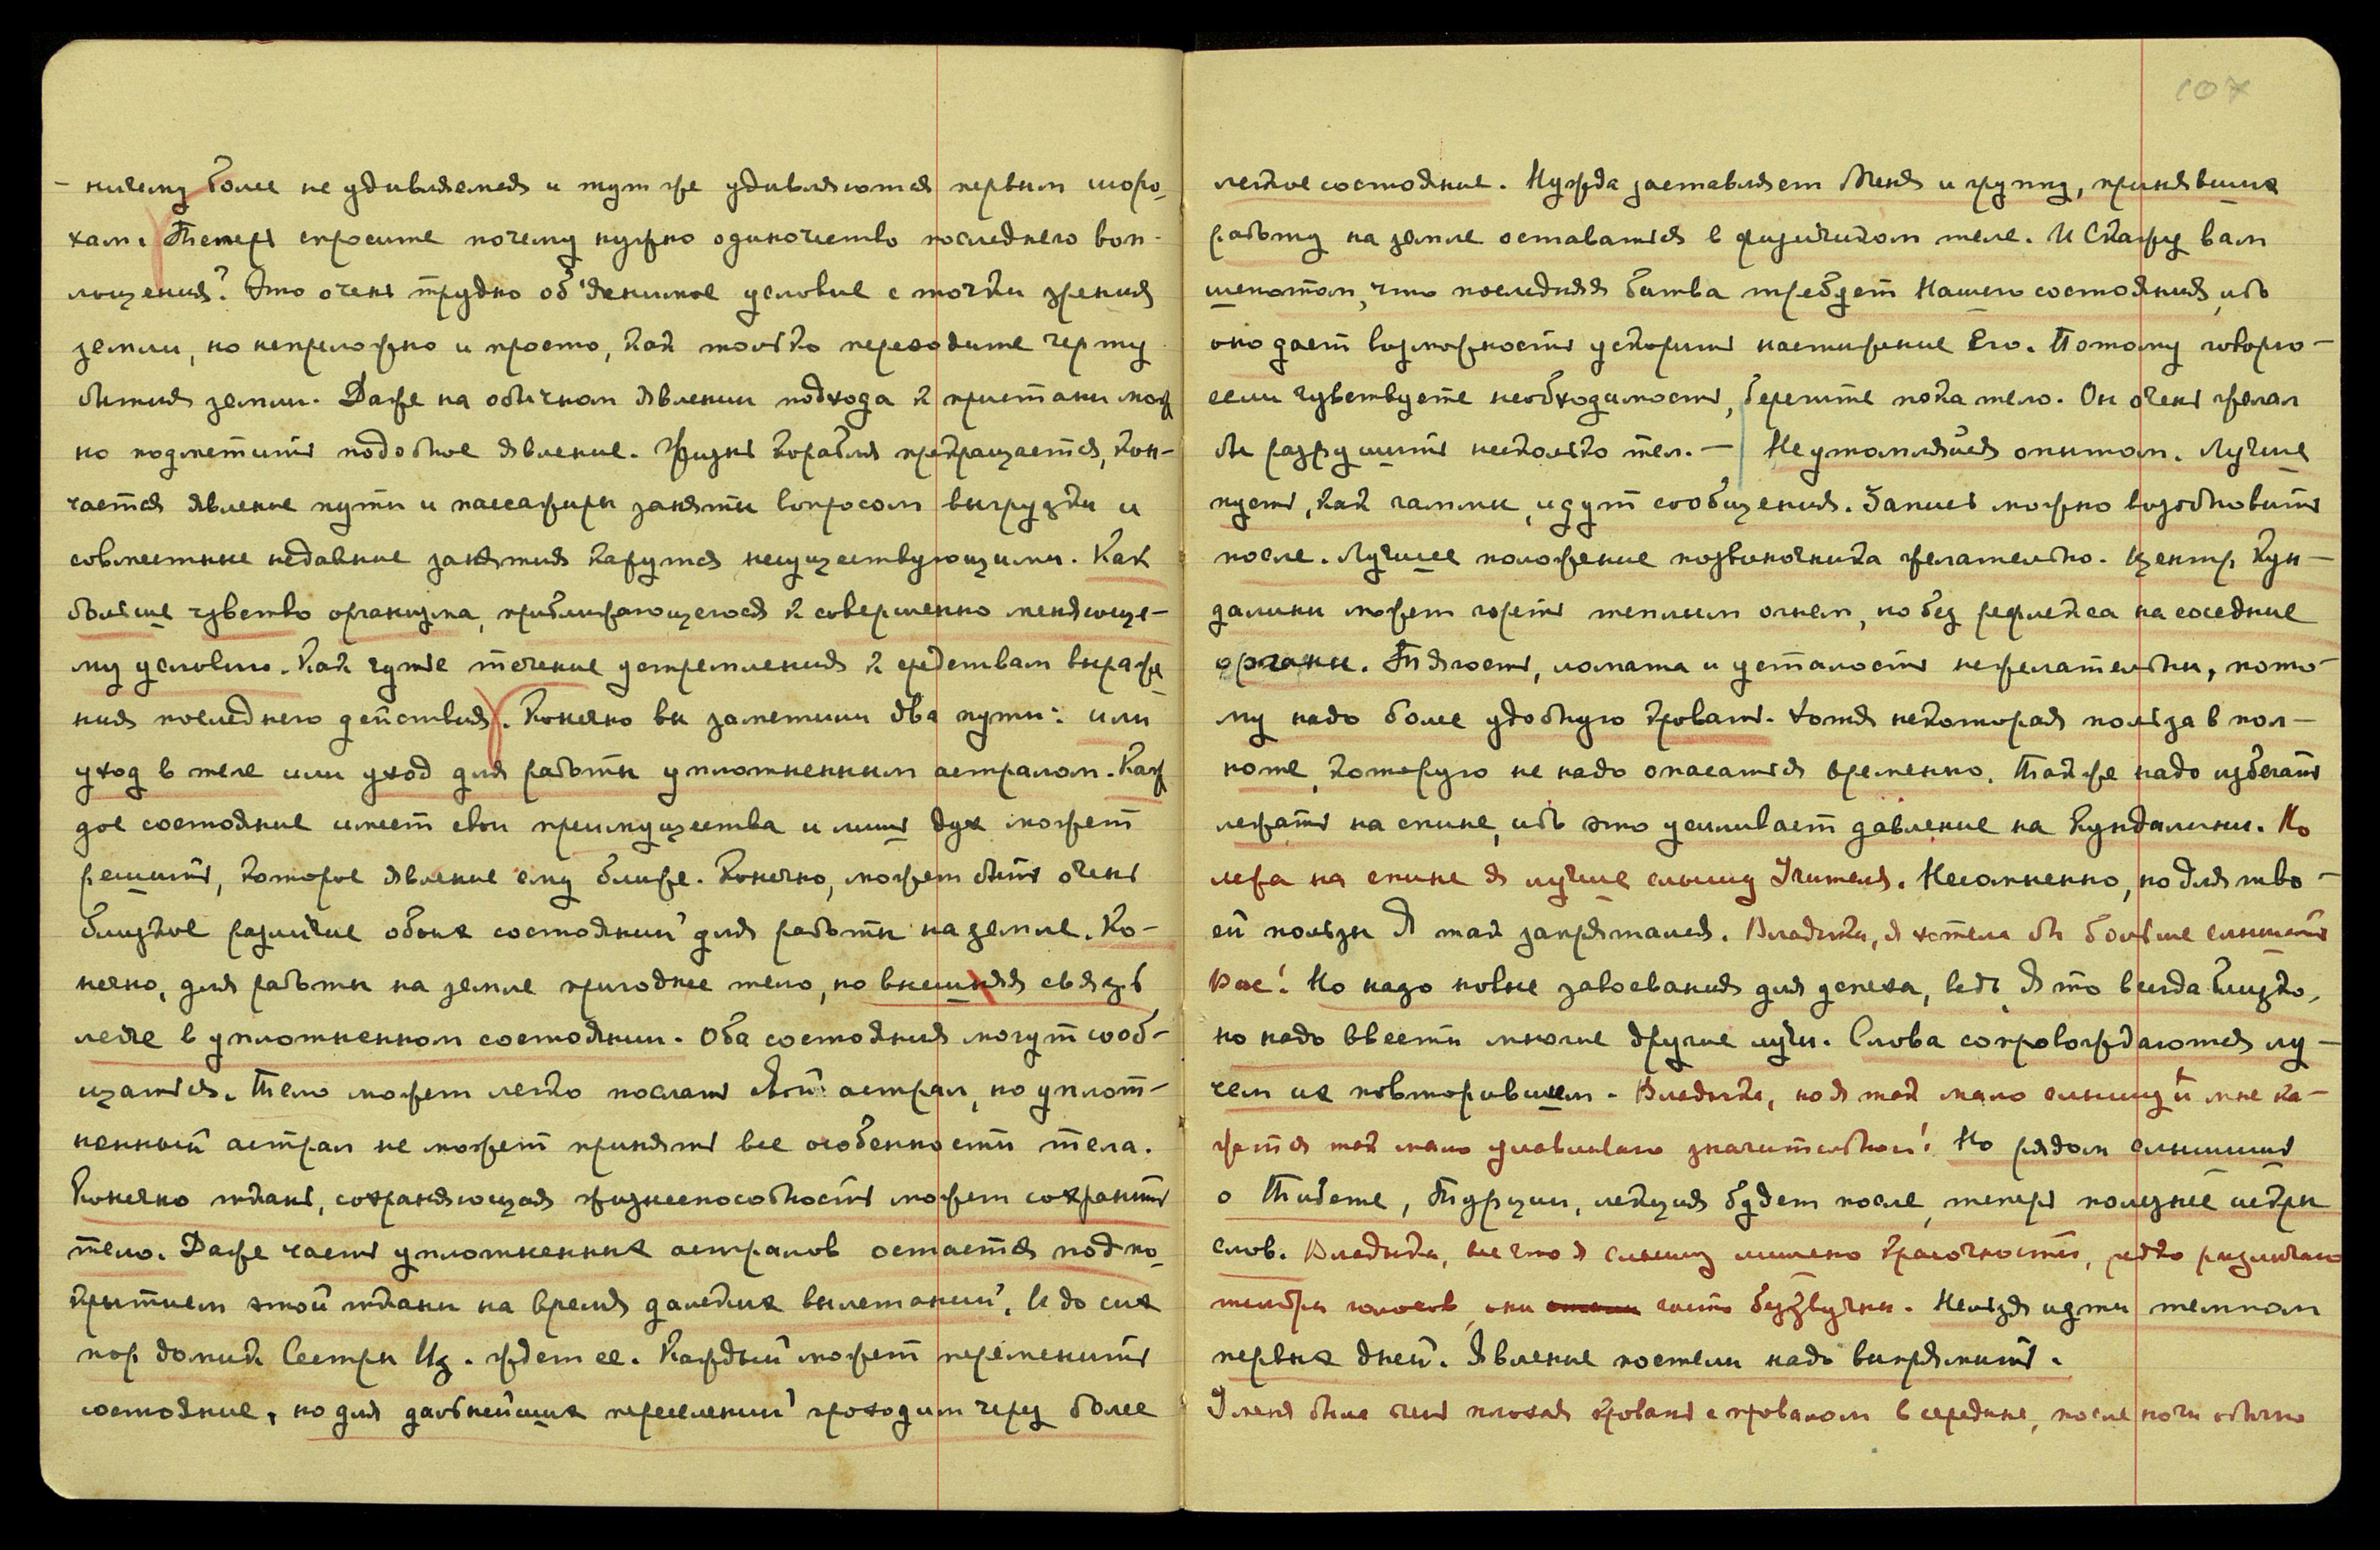 – ничему более не удивляемся и тут же удивляются первым шоро-
хам. Теперь спросите почему нужно одиночество последнего воп-
лощения? Это очень трудно об'яснимое условие с точки зрения
земли, но непреложно и просто, как только переходите черту
бытия земли. Даже на обычном явлении подхода к пристани мож
но подметить подобное явление. Жизнь корабля прекращается, кон-
чается явление пути и пассажиры заняты вопросом выгрузки и
совместные недавние занятия кажутся несуществующими. Как
больше чувство организма, приближающегося к совершенно меняюще-
му условию. Как чутье течение устремления к средствам выраже-
ния последнего действия. Конечно вы заметили два пути: или
уход в теле или уход для работы уплотненным астралом. Каж
дое состояние имеет свои преимущества и лишь дух может
решить, которое явление ему ближе. Конечно, может быть очень
близкое различие обоих состояний для работы на земле. Ко-
нечно, для работы на земле пригоднее тело, но внешняя связь
легче в уплотненном состоянии. Оба состояния могут сооб-
щаться. Тело может легко послать свой астрал, но уплот-
ненный астрал не может принять все особенности тела.
Конечно ткань, сохраняющая жизнеспособность может сохранить
тело. Даже часть уплотненных астралов остается под по-
крытием этой ткани на время далеких вылетаний. И до сих
пор домик Сестры Из. ждет ее. Каждый может переменить
состояние, но для дальнейших переселений проходим через более
107
легкое состояние. Нужда заставляет Меня и группу, принявших
работу на земле оставаться в физическом теле. И Скажу вам
шепотом, что последняя битва требует Нашего состояния, ибо
оно дает возможность ускорить настижение Его. Потому говорю –
если чувствуете необходимость, берегите пока тело. Он очень желал
бы разрушить несколько тел. – Не утомляйся опытом. Лучше
пусть, как гаммы, идут сообщения. Запись можно возобновить
после. Лучшее положение позвоночника желательно. Центр Кун-
далини может гореть теплым огнем, но без рефлекса на соседние
органы. Тягость, ломота и усталость нежелательны, пото-
му надо более удобную кровать. Хотя некоторая польза в пол-
ноте, которую не надо опасаться временно. Также надо избегать
лежать на спине, ибо это усиливает давление на Кундалини. Но
лежа на спине я лучше слышу Учителя. Несомненно, но для тво-
ей пользы Я так запрятался. Владыка, я хотела бы больше слышать
Вас! Но надо новые завоевания для успеха, ведь Я то всегда близко,
но надо ввести многие другие лучи. Слова сопровождаются лу-
чем их повторившем. Владыка, но я так мало слышу и мне ка-
жется так мало улавливаю значительной! Но рядом слышишь
о Тибете, Турции, лекция будет после, теперь полезнее искры
слов. Владыка, все что я слышу лишено красочности, редко различаю
тембры голосов, они часто беззвучны. Нельзя идти темпом
первых дней. Явление постели надо выпрямить.
У меня была очень плохая кровать с провалом в середине, после ночи обычно